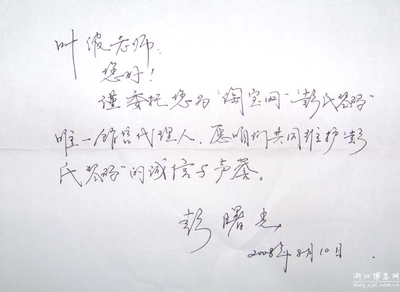 叶波老师:
您好!
谨委托您为“淘宝网”“彭氏琴码”
唯一销售代理人。愿咱们共同维护“彭
氏琴码”的诚信与声誉。
彭曙光
2008年8月10日
浙江博客网